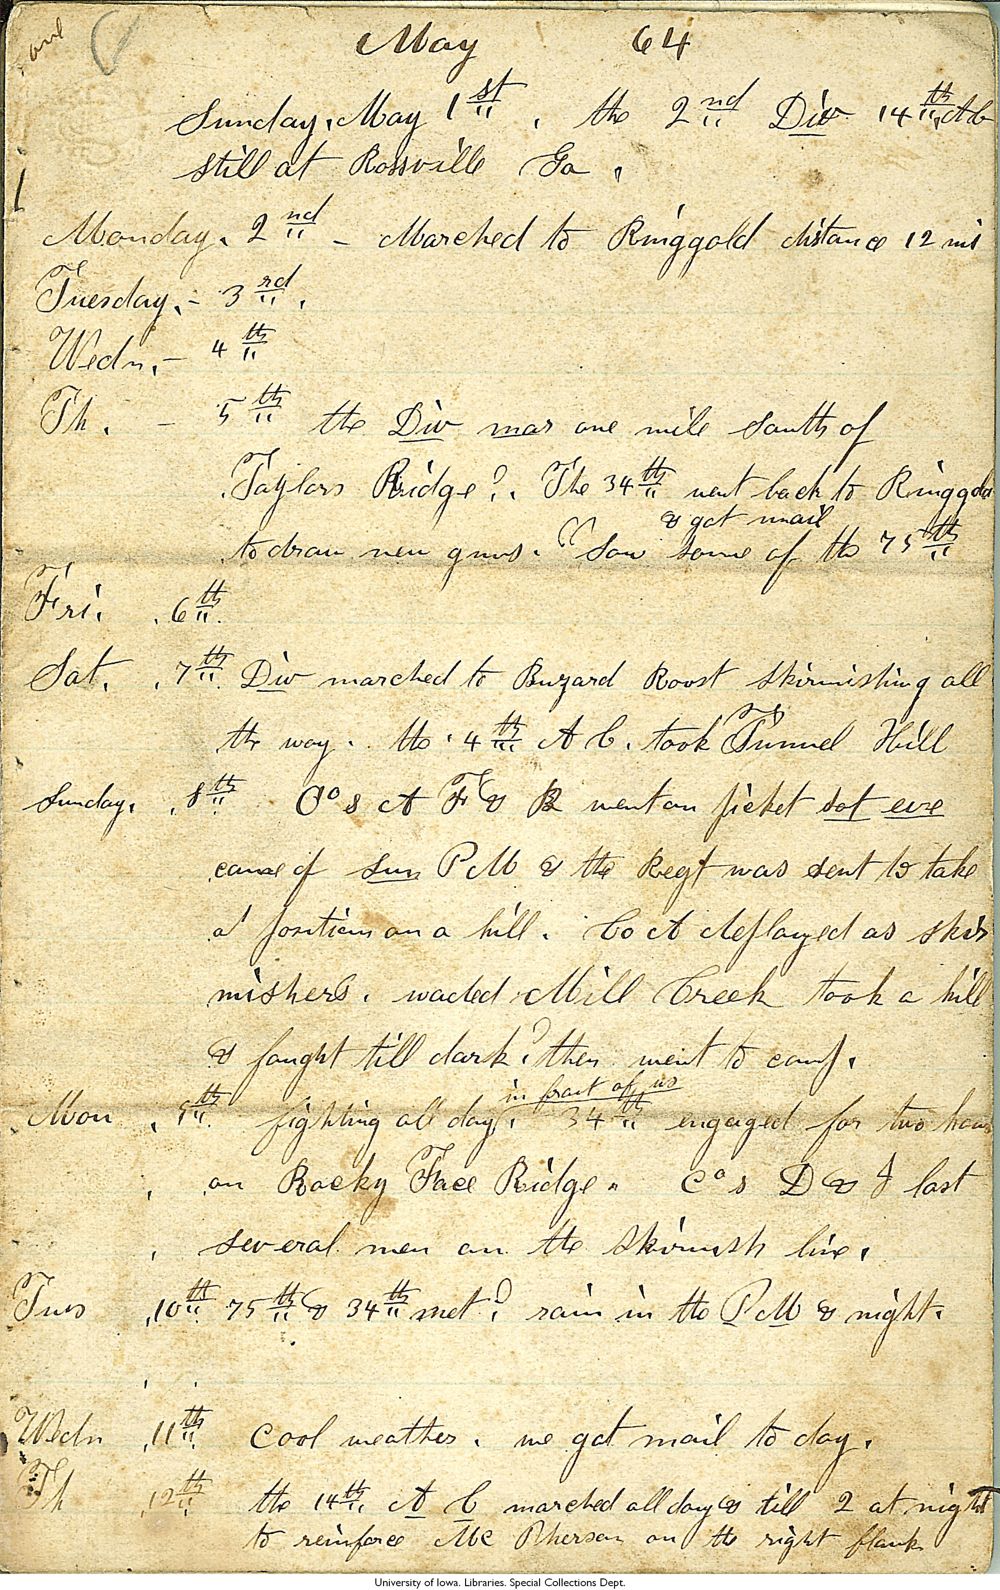 one
May 64
Sunday, May 1st, the 2nd Div 14th A C
still at Rossville Ga,
Monday. 2nd - Marched to Ringgold distance 12 mi
Tuesday. - 3rd.
Wedn. - 4th
Th. - 5th the Div mar one mile South of
Taylors Ridge. The 34th went back to Ringgold
& got mail
to draw new guns. Saw some of the 75th
Fri. 6th.
Sat. 7th. Div marched to Buzard Roost skirmishing all
the way. the 4th A C. took Tunnel Hill
Sunday. 8th Cos A F & B went on picket
cause of P M & the Regt was sent to take
a position on a hill. Co A deployed as skir
mishers. waded Mill Creek took a hill
& fought till dark. then went to camp.
in front of us
Mon. 9th. fighting all day. 34th engaged for two hours
on Rocky Face Ridge. Cos D & I lost
several men on the skirmish line.
Tues 10th 75th & 34th met. rain in the P M & night.
Wedn 11th. cool weather. we got mail to day.
Th 12th the 14th A C marched all day & till 2 at night
to reinforce Mc Pherson on the right flank
University of Iowa. Libraries. Special Collections Dept.